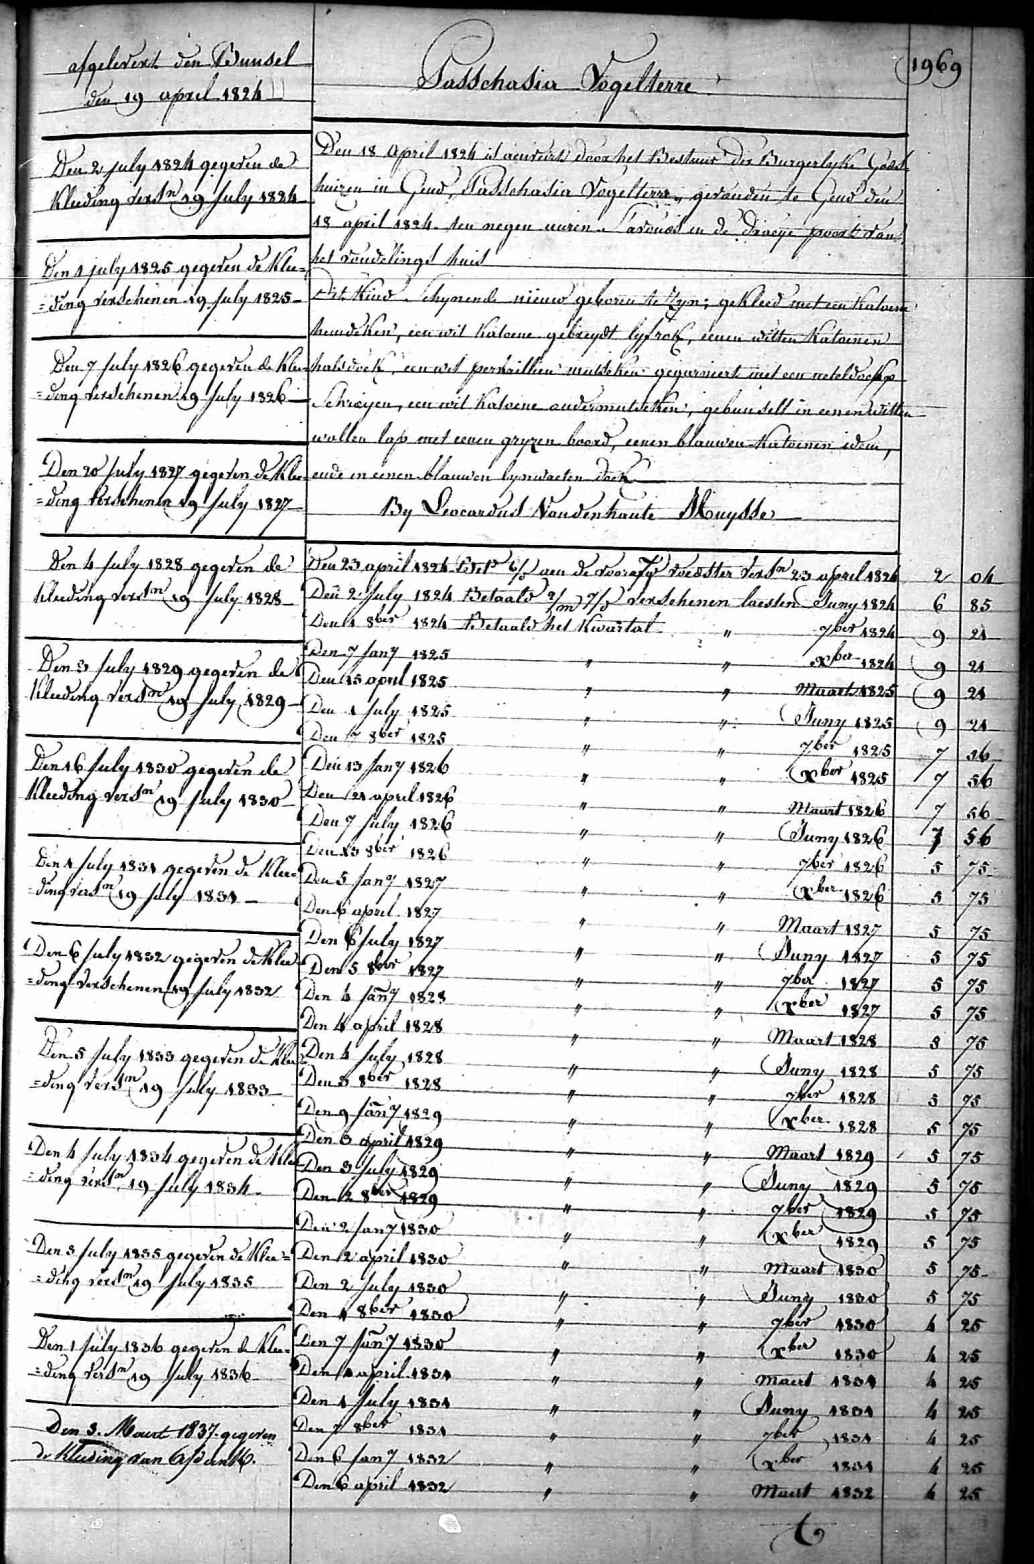 afgelevert den Bunsel
den 19 april 1824
Passchasia Vogelterre
1969
Den 2 july 1824 gegeven de
Kleeding versn 19 July 1824
Den 1 july 1825 gegeven de Klee=
=ding verschenen 19 July 1825
Den 7 july 1826 gegeven de Klee
=ding verschenen 19 July 1826
Den 20 July 1827 gegeven de Klee
=ding verschenen 19 July 1827
Den 4 July 1828 gegeven de
Kleeding versn 19 July 1828
Den 3 July 1829 gegeven de
Kleeding versn 19 July 1829
Den 16 July 1830 gegeven de
Kleeding versn 19 July 1830
Den 1 July 1831 gegeven de Klee=
=ding versn 19 July 1831
Den 6 July 1832 gegeven de Klee
=ding verschenen 19 July 1832
Den 5 July 1833 gegeven de Klee
=ding versn 19 July 1833
Den 4 July 1834 gegeven de Klee
=ding versn 19 July 1834
Den 3 July 1835 gegeven de Klee=
=ding versn 19 July 1835
Den 1 July 1836 gegeven de Klee=
=ding versn 19 July 1836
Den 3. Maart 1837. gegeven
de Kleeding van
Den 18 April 1824 is door het Bestuur der Burgerlyke Gods
huizen in Gend, Passchasia Vogelterre, gevonden te Gend den
18 april 1824 ten negen uuren s'avonds in de draeye poort van
het vondelings huis
Dit Kind schynende nieuw geboren te zyn; gekleed met een Katoene
hemdeken, een wit Katoene gebreydt lyfrok, eenen witten Katoenen
halsdoek, een wit mutseken gegarneert met een neteldoeks
een wit Katoene ondermutseken, gebunselt in eenen witten
wollen lap met eenen gryzen boord, eenen blauwen Katoenen idem,
ende in eenen blauwen lynwaeten doek
By Leocardus Vandenhaute Muysse
Den 23 april 1824 aen de voedster versn 23 april 1824 2 04
Den 2 July 1824 Betaald verschenen laesten Juny 1824 6 85
Den 1 8ber 1824 Betaald het Kwartal " 7ber 1824 9 21
Den 7 Jany 1825 " " xber 1824 9 21
Den 15 april 1825 " " Maart 1825 9 21
Den 1 July 1825 " " Juny 1825 9 21
Den 7 8ber 1825 " " 7ber 1825 7 56
Den 13 Jany 1826 " " xber 1825 7 56
Den 21 april 1826 " " Maart 1826 7 56
Den 7 July 1826 " " Juny 1826 7 56
Den 13 8ber 1826 " " 7ber 1826 5 75
Den 5 Jany 1827 " " xber 1826 5 75
Den 6 april 1827 " " Maart 1827 5 75
Den 6 July 1827 " " Juny 1827 5 75
Den 5 8ber 1827 " " 7ber 1827 5 75
Den 4 Jany 1828 " " xber 1827 5 75
Den 4 april 1828 " " Maart 1828 5 75
Den 4 July 1828 " " Juny 1828 5 75
Den 3 8ber 1828 " " 7ber 1828 5 75
Den 9 Jany 1829 " " xber 1828 5 75
Den 3 april 1829 " " Maart 1829 5 75
Den 3 July 1829 " " Juny 1829 5 75
Den 2 8ber 1829 " " 7ber 1829 5 75
Den 2 Jany 1830 " " xber 1829 5 75
Den 2 april 1830 " " Maart 1830 5 75
Den 2 July 1830 " " Juny 1830 5 75
Den 1 8ber 1830 " " 7ber 1830 4 25
Den 7 Jany 1830 " " xber 1830 4 25
Den 1 april 1831 " " Maert 1831 4 25
Den 1 July 1831 " " Juny 1831 4 25
Den 7 8ber 1831 " " 7ber 1831 4 25
Den 6 Jany 1832 " " xber 1831 4 25
Den 6 april 1832 " " Maert 1832 4 25